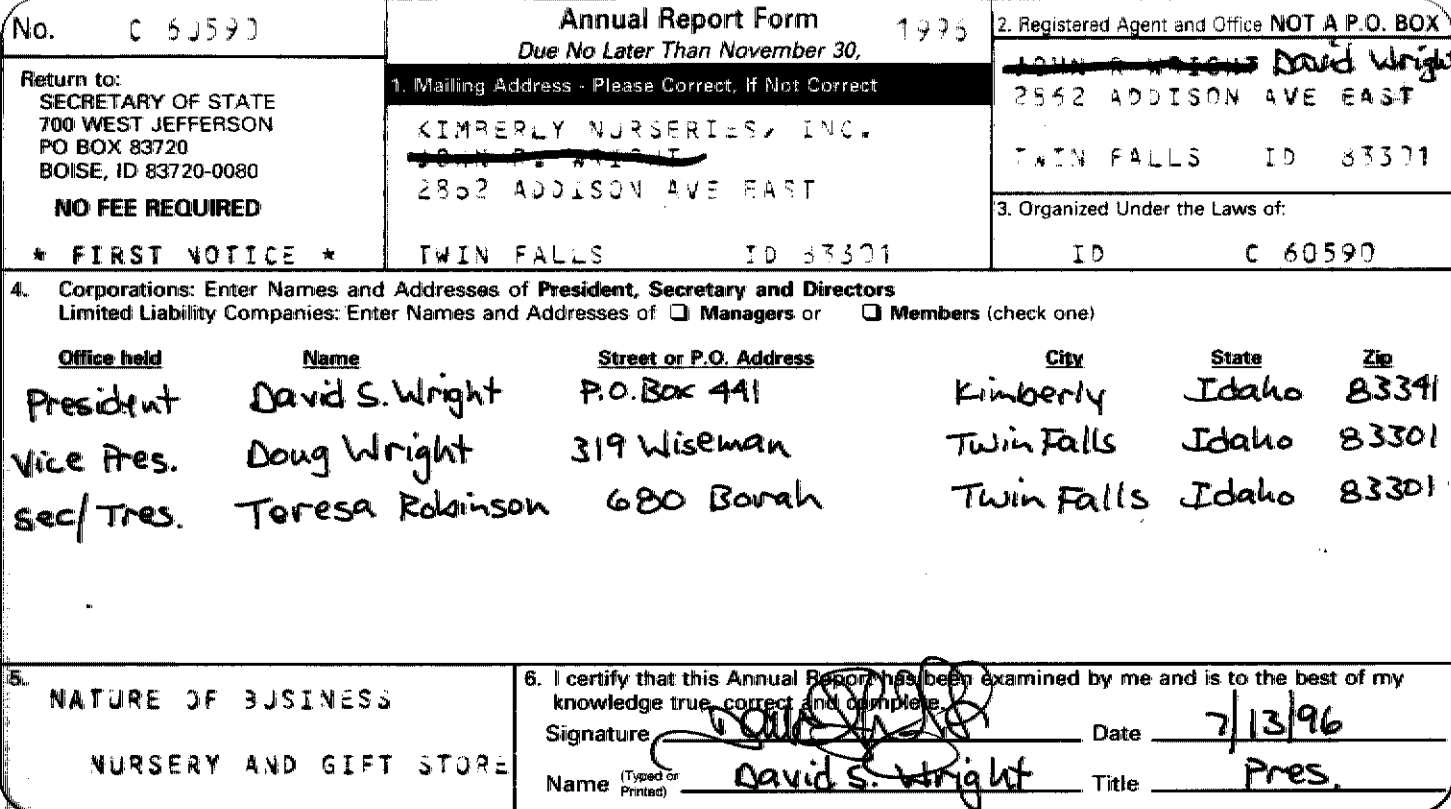 No. C 60590
Annual Report Form 1996
Due No Later Than November 30,
Return to:
SECRETARY OF STATE
700 WEST JEFFERSON
PO BOX 83720
BOISE, ID 83720-0080
NO FEE REQUIRED
* FIRST NOTICE *
1. Mailing Address - Please Correct, If Not Correct
KIMBERLY NURSERIES, INC.
JOHN R. WRIGHT
2862 ADDISON AVE EAST
TWIN FALLS ID 83301
2. Registered Agent and Office NOT A P.O. BOX
JOHN R WRIGHT David Wright
2862 ADDISON AVE EAST
TWIN FALLS ID 83301
3. Organized Under the Laws of:
ID C 60590
4. Corporations: Enter Names and Addresses of President, Secretary and Directors
Limited Liability Companies: Enter Names and Addresses of ❑ Managers or ❑ Members (check one)
Office held Name Street or P.O. Address City State Zip
President David S. Wright P.O. Box 441 Kimberly Idaho 83341
Vice Pres. Doug Wright 319 Wiseman Twin Falls Idaho 83301
Sec/Tres. Teresa Robinson 680 Borah Twin Falls Idaho 83301
5. NATURE OF BUSINESS
NURSERY AND GIFT STORE
6. I certify that this Annual Report has been examined by me and is to the best of my
knowledge true, correct and complete.
Signature Date 7/13/96
Name (Typed or Printed) David S. Wright Title Pres.